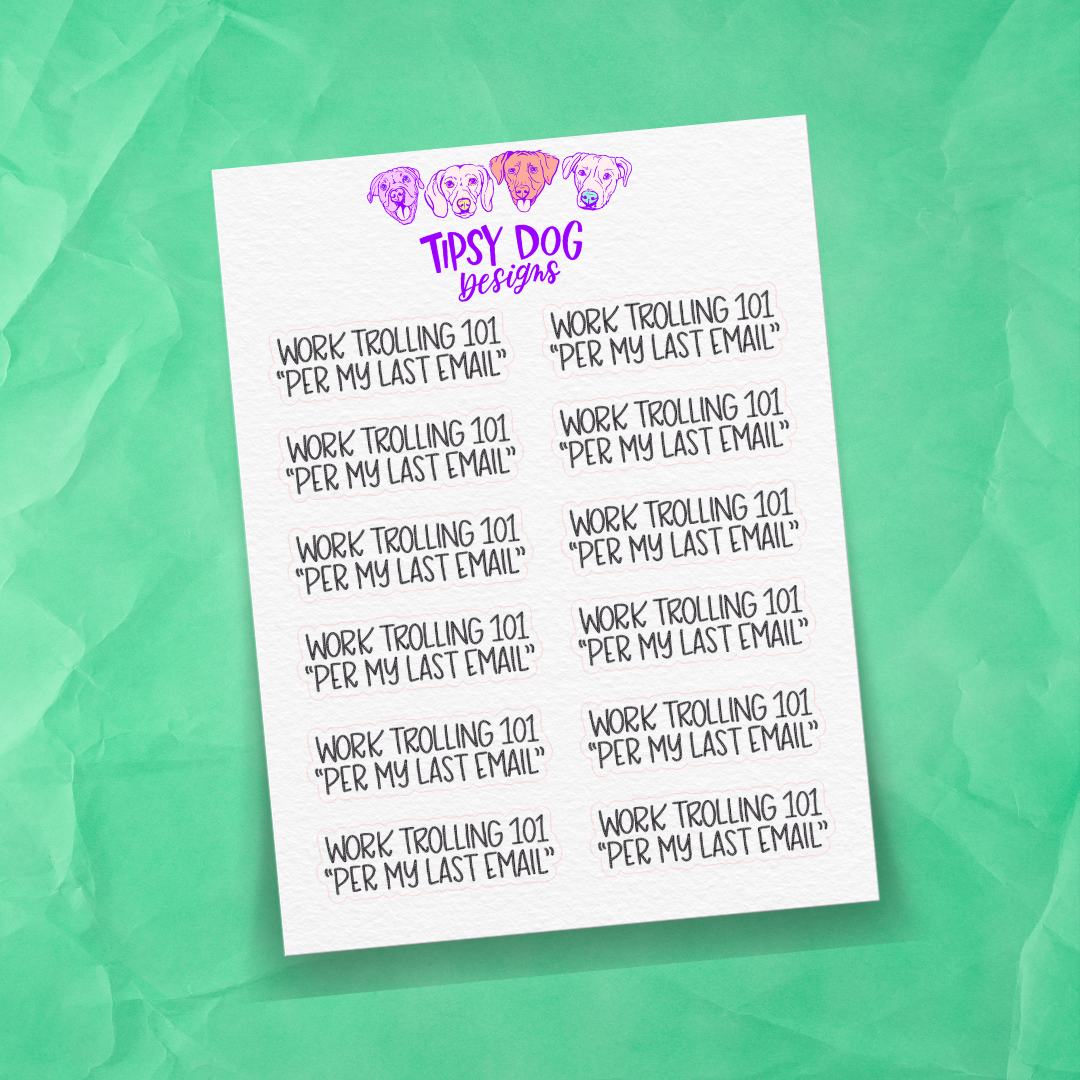 TIPSY DOG
Designs
WORK TROLLING 101
"PER MY LAST EMAIL"
WORK TROLLING 101
"PER MY LAST EMAIL"
WORK TROLLING 101
"PER MY LAST EMAIL"
WORK TROLLING 101
"PER MY LAST EMAIL"
WORK TROLLING 101
"PER MY LAST EMAIL"
WORK TROLLING 101
"PER MY LAST EMAIL"
WORK TROLLING 101
"PER MY LAST EMAIL"
WORK TROLLING 101
"PER MY LAST EMAIL"
WORK TROLLING 101
"PER MY LAST EMAIL"
WORK TROLLING 101
"PER MY LAST EMAIL"
WORK TROLLING 101
"PER MY LAST EMAIL"
WORK TROLLING 101
"PER MY LAST EMAIL"